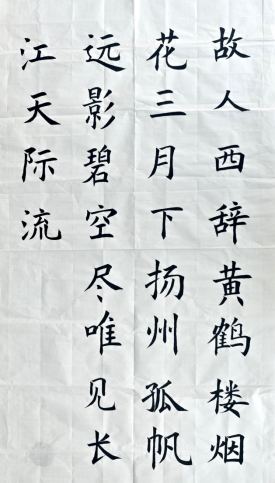 故人西辞黄鹤楼烟
花三月下扬州孤帆
远影碧空尽唯见长
江天际流